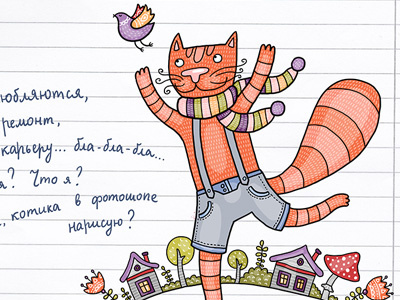 юбляются,
ремонт,
карьеру... бла-бла-бла...
я? Что я?
., котика в фотошопе
нарисую?